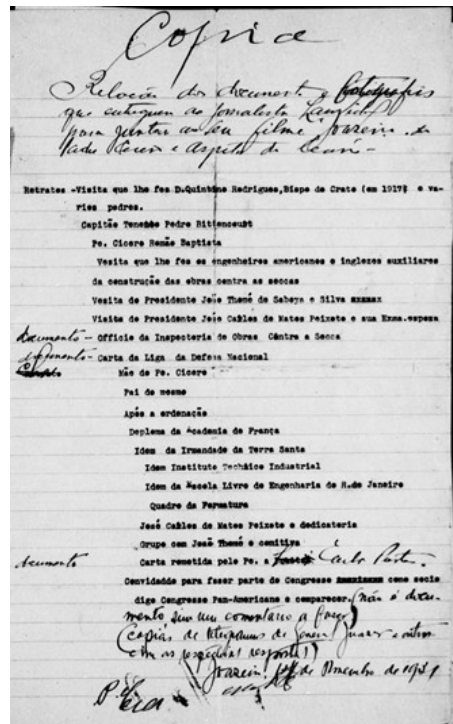 Copia
Relação dos documentos e fotografias
que entreguei ao jornalista
para juntar ao seu filme Joazeiro do
Padre Cicero e aspectos do Ceará -
Retratos -Visita que lhe fez D.Quintino Rodrigues,Bispo do Crato (em 1917) e va-
rios padres.
Capitão Tenente Pedro Bittencourt
Pe. Cicero Romão Baptista
Vesita que lhe fez os engenheiros americanos e inglezes auxiliares
da construção das obras contra as seccas
Vesita do Presidente José Thomé de Saboya e Silva xxxxxx
Visita do Presidente José Carlos de Matos Peixoto e sua Exma.esposa
documento - Officio da Inspectoria de Obras Contra a Secca
documento - Carta da Liga da Defesa Nacional
Mãe do Pe. Cicero
Pai do mesmo
Após a ordenação
Deploma da Academia de França
Idem da Irmandade da Terra Santa
Idem Instituto Techñico Industrial
Idem da Escola Livre de Engenharia do R.de Janeiro
Quadro da Formatura
José Carlos de Matos Peixoto e dedicatoria
Grupo com José Thomé e comitiva
documento Carta remetida pelo Pe. a Carlos
Convidado para fazer parte do Congresso xxxxxxxx como socio
digo Congresso Pan-Americano e comparecer. (não é docu-
mento sem um comentario a fazer)
(copias de telegramas de Juarez e outros
com as respectivas respostas)
Joazeiro, de Novembro de 1931